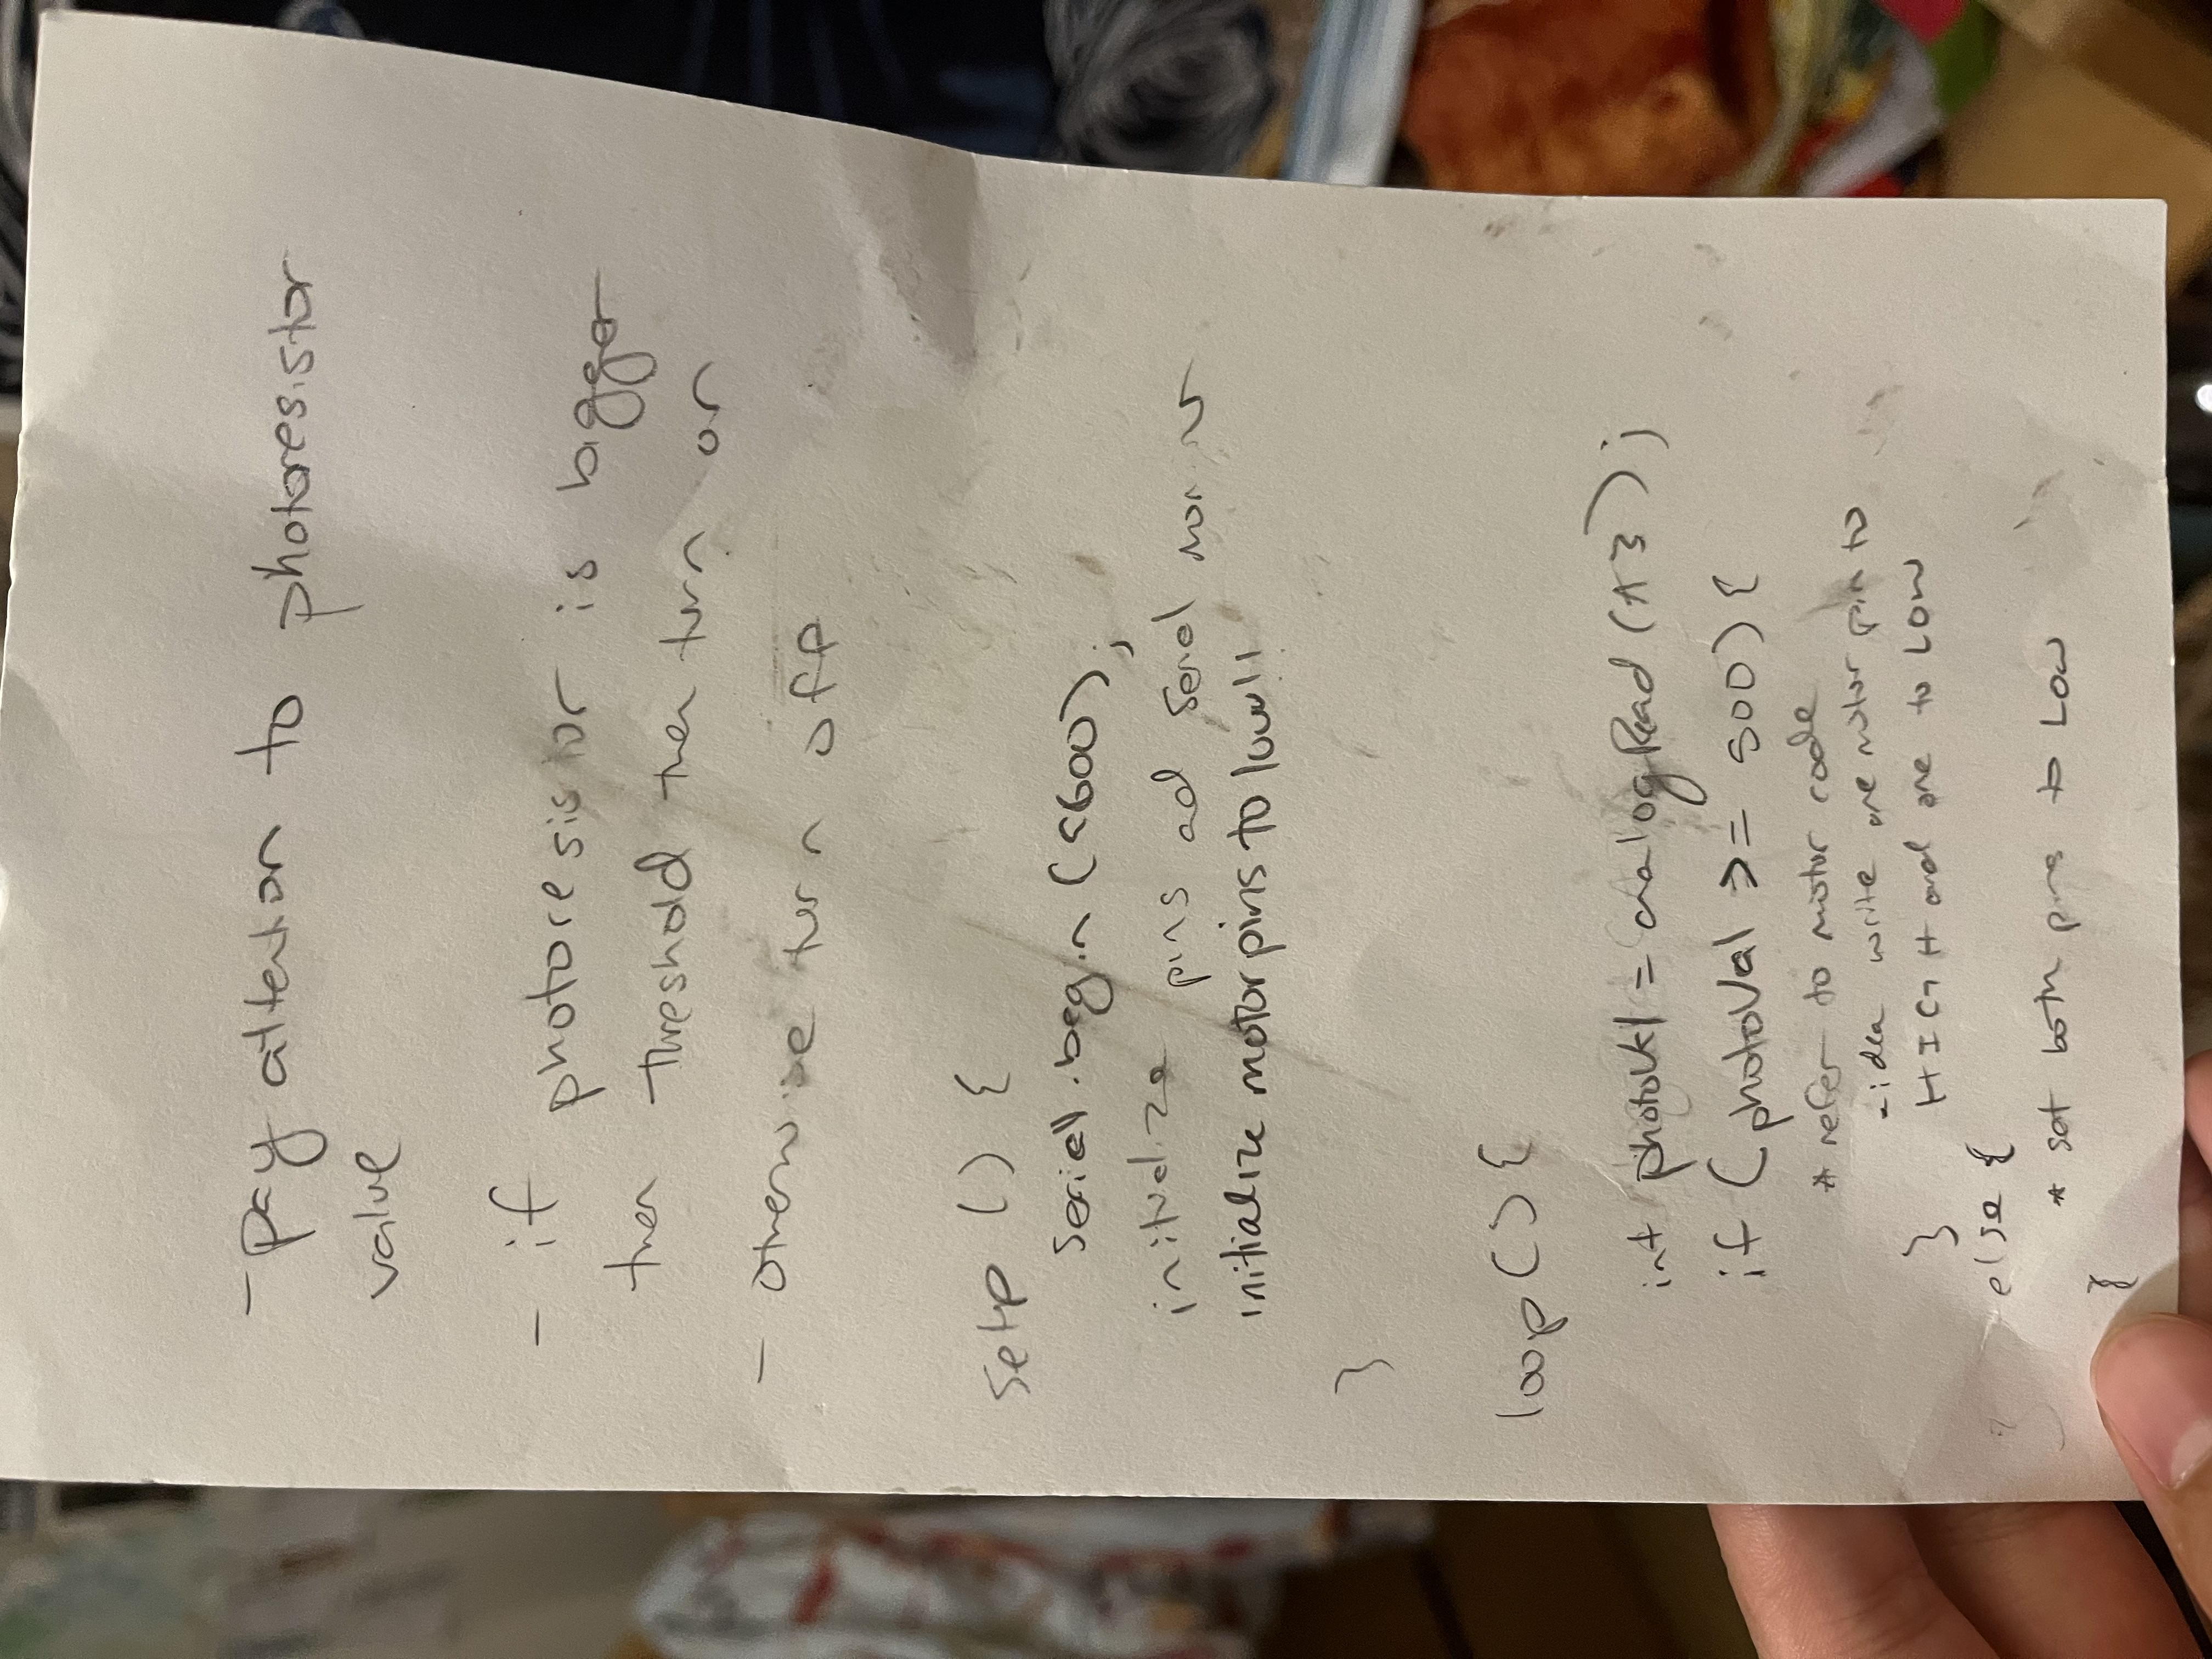 - pay attention to photoresistor
value
- if photoresistor is bigger
then threshold then turn on
- otherwise turn off
setup () {
Serial.begin (9600);
initialize pins ad Serial
initialize motor pins to low!!
}
loop() {
int photoVal = analogRead (A3);
if (photoVal >= 500) {
* refer to motor code
- idea write one motor pin to
} HIGH and one to LOW
else {
* set both pins to LOW
}